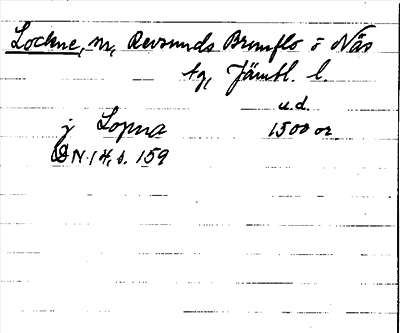 Lockne, sn, Revsunds Brunflo o Näs
tg, Jämtl. l.
u.d.
j Lopna 1500 or.
DN 14, s. 159